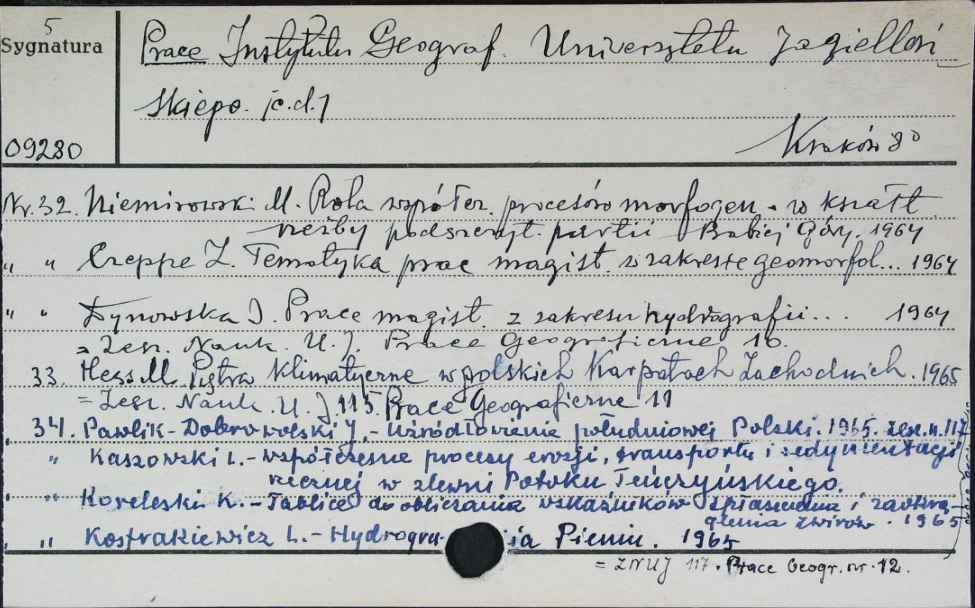 5
Sygnatura
09280
Prace Instytutu Geograf. Uniwersytetu Jagielloń
skiego. /c.d./
Kraków 8°
Nr. 32. Niemirowski M. Rola współcz. procesów morfogen. w kształt.
rzeźby podszczyt. partii Babiej Góry. 1964
" " Czeppe Z. Tematyka prac magist. z zakresu geomorfol... 1964
" " Dynowska I. Prace magist. z zakresu hydrografii... 1964
= Zesz. Nauk. U.J. Prace Geograficzne 10.
33. Hess M. Piętra klimatyczne w polskich Karpatach Zachodnich. 1965
= Zesz. Nauk. U.J. 115 Prace Geograficzne 11
" 34. Pawlik-Dobrowolski J. - Uźródłowienie południowej Polski. 1965. zesz. n. 117
" Kaszowski L. - Współczesne procesy erozji, transportu i sedymentacji
rzecznej w zlewni Potoku Tenczyńskiego.
" " Koreleski K. - Tablice do obliczania wskaźników spłaszczenia i zaokrą-
glenia żwirów. 1965
" " Kostrakiewicz L. - Hydrogra ia Pienin. 1965
= ZNUJ 117. Prace Geogr. nr. 12.